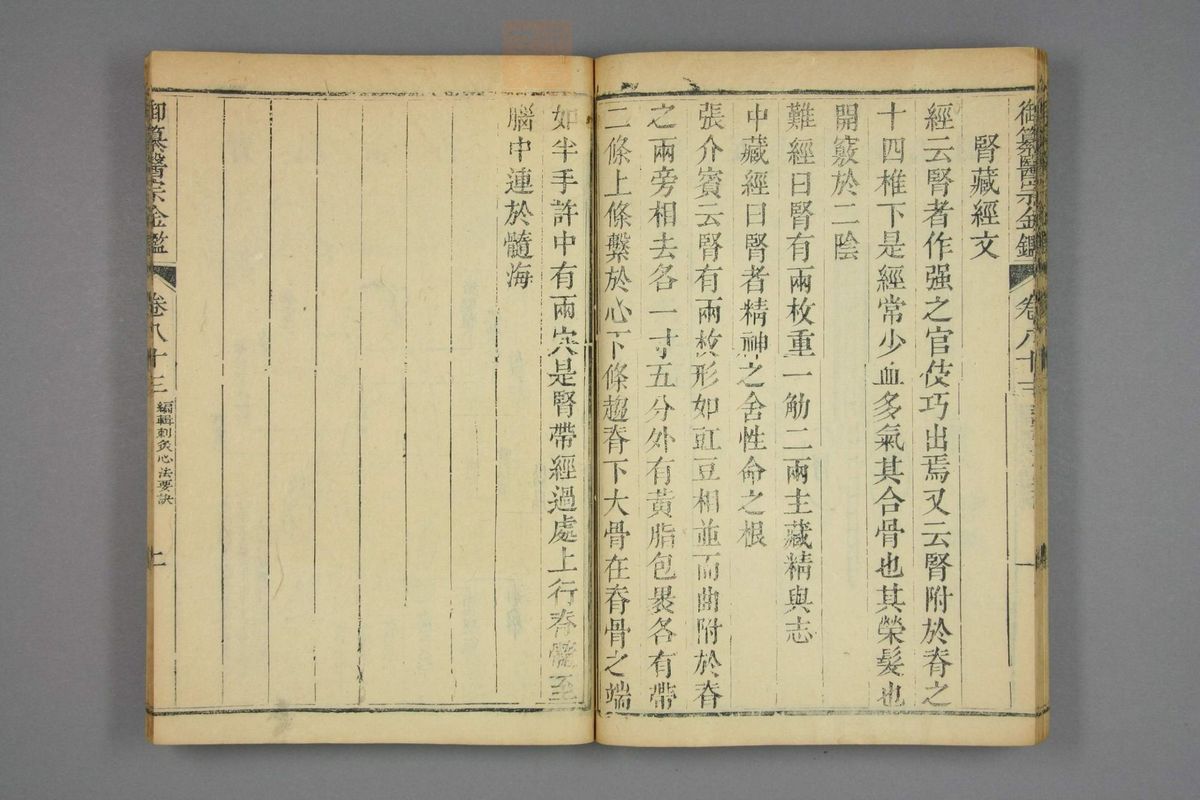 御纂醫宗金鑑 卷八十三
腎藏經文
經云腎者作强之官伎巧出焉又云腎附於脊之
十四椎下是經常少血多氣其合骨也其榮髮也
開竅於二陰
難經曰腎有兩枚重一觔二兩主藏精與志
中藏經曰腎者精神之舍性命之根
張介賓云腎有兩枚形如豇豆相並而曲附於脊
之兩旁相去各一寸五分外有黃脂包裹各有帶
二條上條繫於心下條趨脊下大骨在脊骨之端
如半手許中有兩穴是腎帶經過處上行脊髓至
腦中連於髓海
御纂醫宗金鑑 卷八十三 編輯刺灸心法要訣